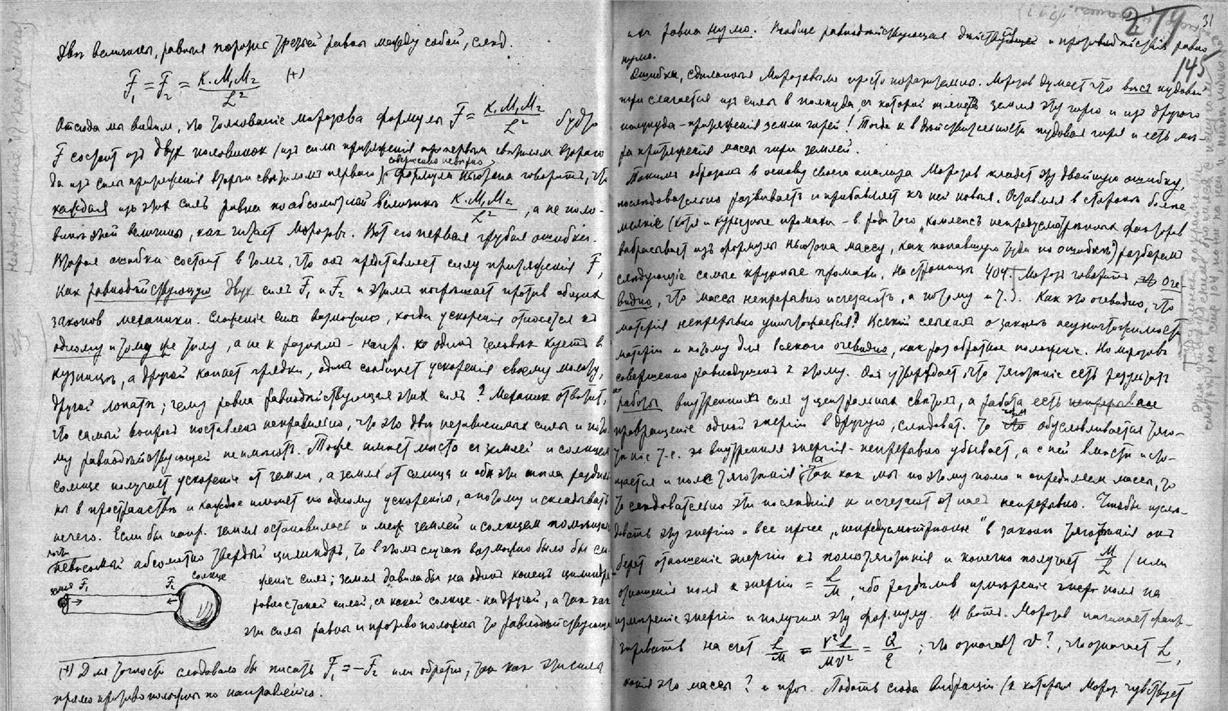 Две величины, равныя порознь третьей равны между собой, след.
F₁ = F₂ = K.M₁M₂ / L² (+)
Отсюда мы видим, что толкованіе Морозова формулы F = K.M₁M₂ / L² будто
F состоит из двух половинок (из силы притяженія первым свѣтилом второго
да из силы притяженія вторым свѣтилом первого) совершенно невѣрно формула Ньютона говорит, что
каждая из этих сил равна по абсолютной величинѣ K.M₁M₂ / L², а не поло-
винѣ этой величины, как считает Морозов. Вот его первая грубая ошибка.
Вторая ошибка состоит в том, что он представляет силу притяженія F,
как равнодѣйствующую двух сил F₁ и F₂ и этим погрѣшает против общих
законов механики. Сложеніе сил возможно, когда ускоренія относятся къ
одному и тому же тѣлу, а не к разным - напр. ко один человѣк кует в
кузницѣ, а другой копает грядки, один сообщает ускоренія своему молоту,
другой лопатѣ; чему равна равнодѣйствующая этих сил? Механик отвѣтит,
что самый вопрос поставлен неправильно, что это двѣ независимых силы и пото-
му равнодѣйствующей не имѣют. Тоже имѣет мѣсто с землей и солнцем
солнце получает ускореніе от земли, а земля от солнца и оба эти тѣла раздѣле-
ны в пространствѣ и каждое имѣет по одному ускоренію, а потому и складывать
нечего. Если бы напр. земля остановилась и меж землей и солнцем помѣщен
невѣсомый абсолютно твердый цилиндр, то в этом случаѣ возможно было бы сл-
женіе сил; земля давила бы на один конец цилиндра
земля F₁ F₂ солнце
равно такой силой, с какой солнце - на другой, а так как
эти силы равны и противоположны то равнодѣйствующая
(+) Для точности слѣдовало бы писать F₁ = -F₂ или обратно, так как эти силы
прямо противоположны по направленію.
274
31
145
их равна нулю. Вообще равнодѣйствующая дѣйствія и противодѣйствія равна
нулю.
Ошибки, сдѣланныя Морозовым просто поразительны. Морозов думает что вѣс пудовой
гири слагается из силы в полпуда с которой тянет земля эту гирю и из другого
полупуда - притяженія земли гирей! Тогда к в дѣйствительности пудовая гиря и есть мѣ-
ра притяженія массы гири землей.
Таким образом в основу своего анализа Морозов кладет эту двойную ошибку,
послѣдовательно развивает и прибавляет къ ней новыя. Оставляя в сторонѣ болѣе
мелкіе (хотя и курьезные промахи - в родѣ того, комплекс непредусмотрѣнных факторов
выбрасывает из формулы Ньютона массу, как попавшую туда по ошибке) разберем
слѣдующіе самые крупные промахи. На страницѣ 404 Мороз. говорит оче-
видно, что масса непрерывно исчезают, а потому и т.д. Как это очевидно, что
матерія непрерывно уничтожается? Всякій слыхал о законѣ неуничтожимости
матеріи и потому для всякого очевидно, как раз обратное положеніе. Но Морозов
совершенно равнодушен к этому. Он утверждает, что тяготѣніе есть результат
работы внутренних сил у центральных свѣтил, а работа есть
превращеніе одной энергіи в другую, слѣдоват. то обусловливается тяго-
тѣніе т.е. эта внутренняя энергія - непрерывно убывает, а с ней вмѣстѣ исто-
щается и поле тяготѣнія, а так как мы по этому полю и опредѣляем массы, то
то слѣдовательно эти послѣднія и исчезают от нас непрерывно. Чтобы изслѣ-
довать эту энергію и все прочее „непредусмотрѣнное" в законѣ тяготѣнія он
берет отношеніе энергіи къ полю тяготѣнія и конечно получает M / L (или
отношенія поля к энергіи = L / M, ибо раздѣлив измѣреніе энерг. поля на
измѣреніе энергіи и получим эту формулу. И вот. Морозов начинает фант-
зировать на счет L / M = v²L / Mv² = Q / E; что означает v? что означает L,
какія это массы? и проч. Подать сюда вибрацій (к которым Мороз. чувствует